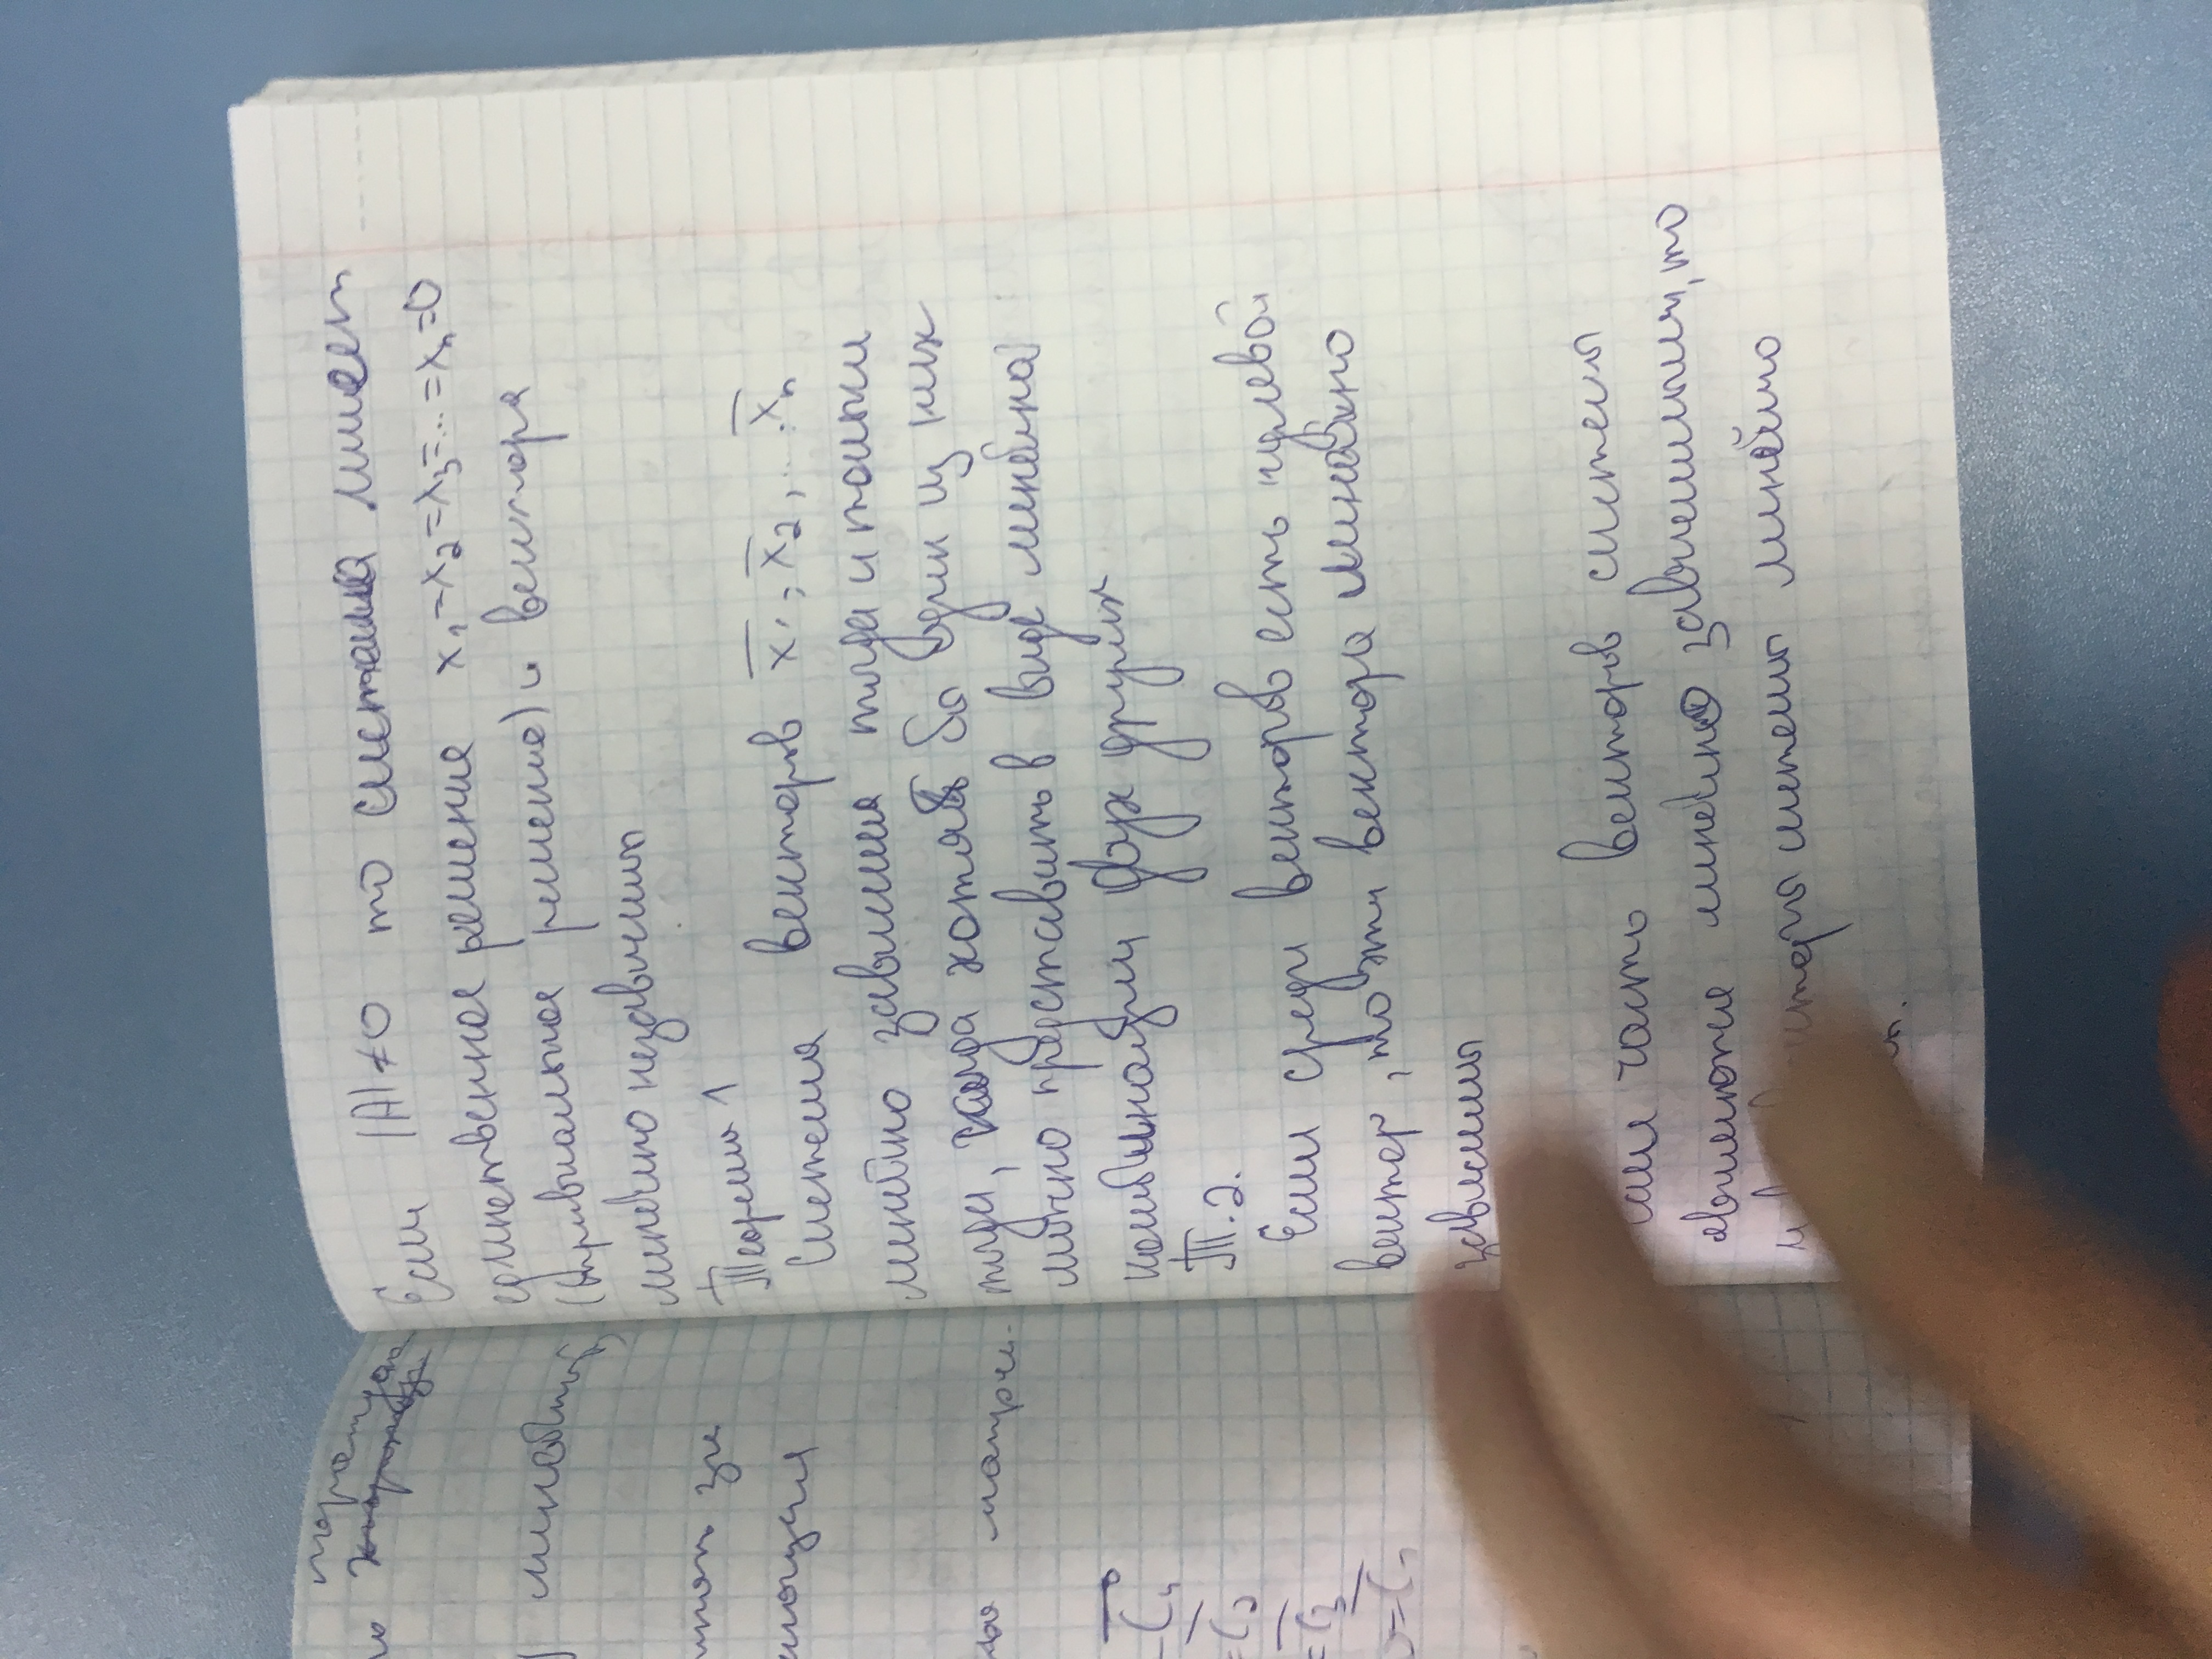 порождаю
линейной
матри-
C₄
= C₂
= C₃
= C₁
Если |A|≠0 то система имеет
единственное решение x₁=x₂=x₃=...=xₙ=0
(тривиальное решение) и вектора
линейно независимы
Теорема 1
Система векторов x̅₁, x̅₂, ... x̅ₙ
линейно зависима тогда и только
тогда, когда хотяб бы один из них
можно представить в виде линейной
комбинации двух других
Т.2.
Если среди векторов есть нулевой
вектор, то эти вектора линейно
зависимы
часть векторов системы
являются линейно зависимыми, то
и системы линейно